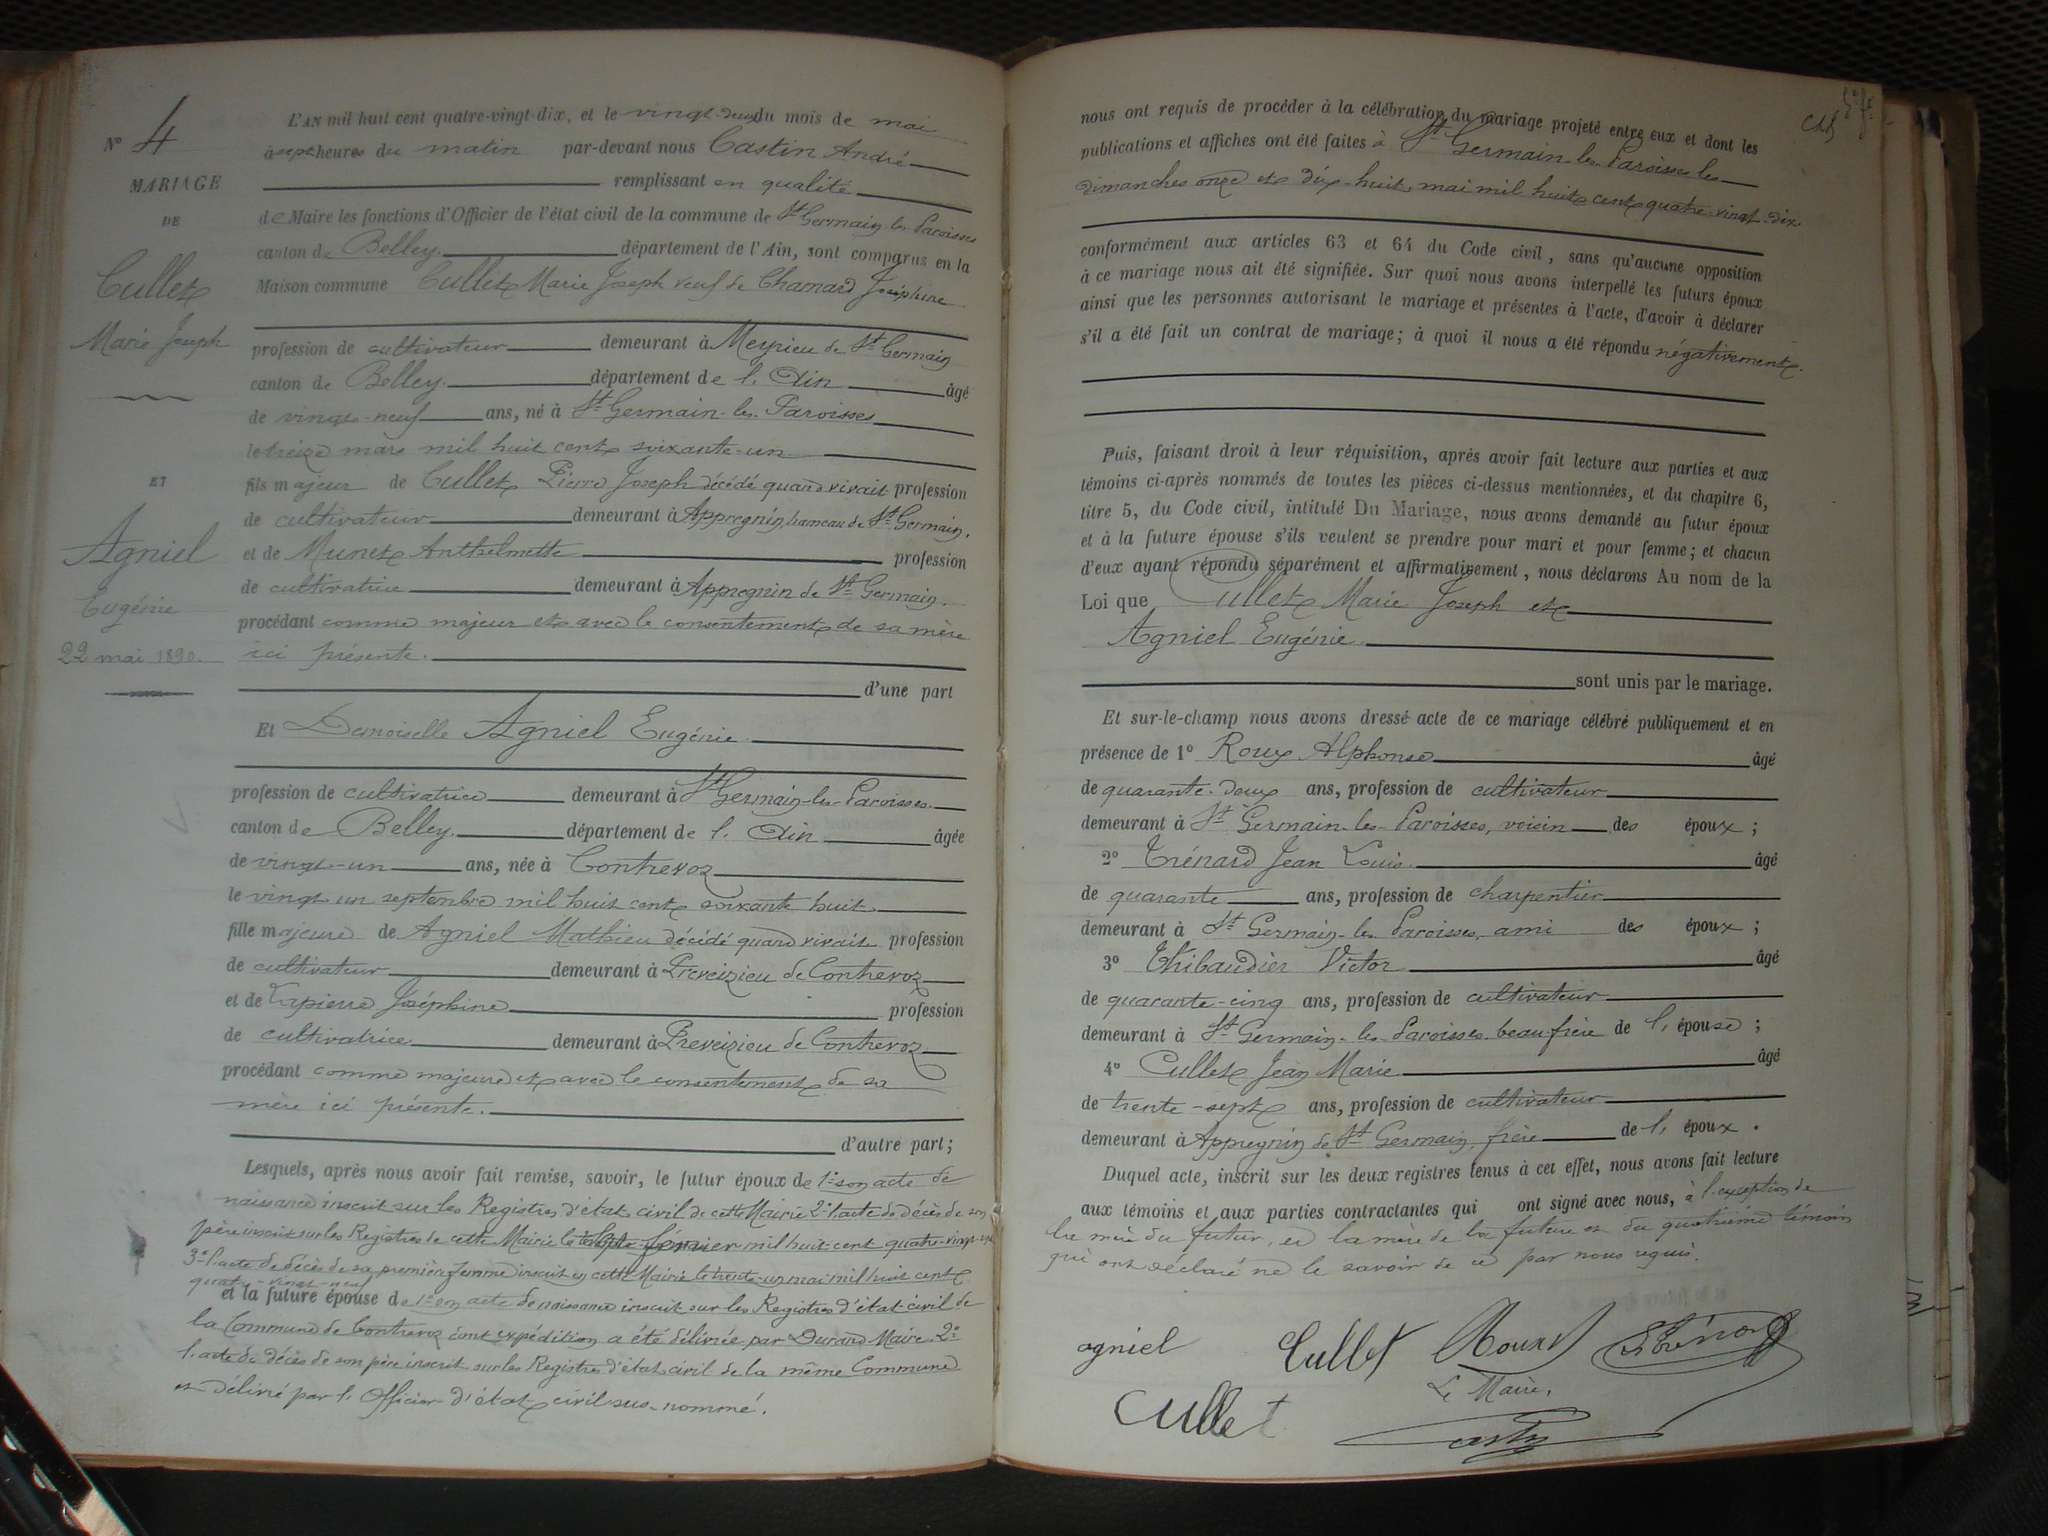 N° 4
MARIAGE
DE
Cullet
Marie Joseph
ET
Agniel
Eugénie
22 mai 1890.
L'AN mil huit cent quatre-vingt-dix, et le vingt-deux du mois de mai
à sept heures du matin par-devant nous Castin André
remplissant en qualité
de Maire les fonctions d'Officier de l'état civil de la commune de St Germain-les-Paroisses
canton de Belley. département de l'Ain, sont comparus en la
Maison commune Cullet Marie Joseph veuf de Chamard Joséphine
profession de cultivateur demeurant à Meyrieu de St Germain
canton de Belley. département de l'Ain âgé
de vingt-neuf ans, né à St Germain-les-Paroisses
le treize mars mil huit cent soixante-un
fils majeur de Cullet Pierre Joseph décédé quand vivait profession
de cultivateur demeurant à Appregnin, hameau de St Germain.
et de Munet Anthelmette profession
de cultivatrice demeurant à Appregnin de St Germain.
procédant comme majeur et avec le consentement de sa mère
ici présente.
d'une part
Et Demoiselle Agniel Eugénie.
profession de cultivatrice demeurant à St Germain-les-Paroisses.
canton de Belley. département de l'Ain âgée
de vingt-un ans, née à Contrevoz
le vingt un septembre mil huit cent soixante huit
fille majeure de Agniel Mathieu décédé quand vivait profession
de cultivateur demeurant à Preveizieu de Contrevoz
et de Lapierre Joséphine profession
de cultivatrice demeurant à Preveizieu de Contrevoz
procédant comme majeure et avec le consentement de sa
mère ici présente.
d'autre part;
Lesquels, après nous avoir fait remise, savoir, le futur époux de 1° son acte de
naissance inscrit sur les Registres d'état civil de cette Mairie 2° l'acte de décès de son
père inscrit sur les Registres de cette Mairie le février mil huit cent quatre-vingt-
3° l'acte de décès de sa première femme inscrit en cette Mairie le trente-un mai mil huit cent
quatre-vingt-neuf
et la future épouse de 1° son acte de naissance inscrit sur les Registres d'état-civil de
la Commune de Contrevoz dont expédition a été délivrée par Durand Maire. 2°
l'acte de décès de son père inscrit sur les Registres d'état civil de la même Commune
et délivré par l'Officier d'état civil sus-nommé.
nous ont requis de procéder à la célébration du mariage projeté entre eux et dont les
publications et affiches ont été faites à St Germain-les-Paroisses les
dimanches onze et dix-huit mai mil huit cent quatre-vingt-dix
conformément aux articles 63 et 64 du Code civil, sans qu'aucune opposition
à ce mariage nous ait été signifiée. Sur quoi nous avons interpellé les futurs époux
ainsi que les personnes autorisant le mariage et présentes à l'acte, d'avoir à déclarer
s'il a été fait un contrat de mariage; à quoi il nous a été répondu négativement.
Puis, faisant droit à leur réquisition, après avoir fait lecture aux parties et aux
témoins ci-après nommés de toutes les pièces ci-dessus mentionnées, et du chapitre 6,
titre 5, du Code civil, intitulé Du Mariage, nous avons demandé au futur époux
et à la future épouse s'ils veulent se prendre pour mari et pour femme; et chacun
d'eux ayant répondu séparément et affirmativement, nous déclarons Au nom de la
Loi que Cullet Marie Joseph et
Agniel Eugénie
sont unis par le mariage.
Et sur-le-champ nous avons dressé acte de ce mariage célébré publiquement et en
présence de 1° Roux Alphonse âgé
de quarante-deux ans, profession de cultivateur
demeurant à St Germain-les-Paroisses, voisin des époux;
2° Trénard Jean Louis. âgé
de quarante ans, profession de charpentier
demeurant à St Germain-les-Paroisses, ami des époux;
3° Thibaudier Victor âgé
de quarante-cinq ans, profession de cultivateur
demeurant à St Germain-les-Paroisses beau frère de l'épouse;
4° Cullet Jean Marie âgé
de trente-sept ans, profession de cultivateur
demeurant à Appregnin de St Germain, frère de l'époux.
Duquel acte, inscrit sur les deux registres tenus à cet effet, nous avons fait lecture
aux témoins et aux parties contractantes qui ont signé avec nous, à l'exception de
la mère du futur, et la mère de la future et du quatrième témoin
qui ont déclaré ne le savoir de ce par nous requis.
agniel Cullet Roux Trénard
Le Maire,
Cullet Castin